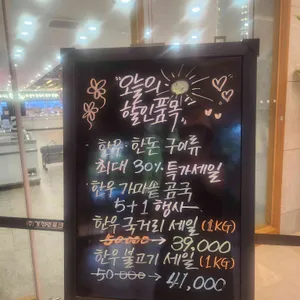 "오늘의
할인품목"
· 한우·한돈 구이류
최대 30% 특가세일
· 한우 가마솥 곰국
5+1 행사
한우 국거리 세일 (1KG)
50000 → 39,000
한우 불고기 세일 (1KG)
50000 → 41,000